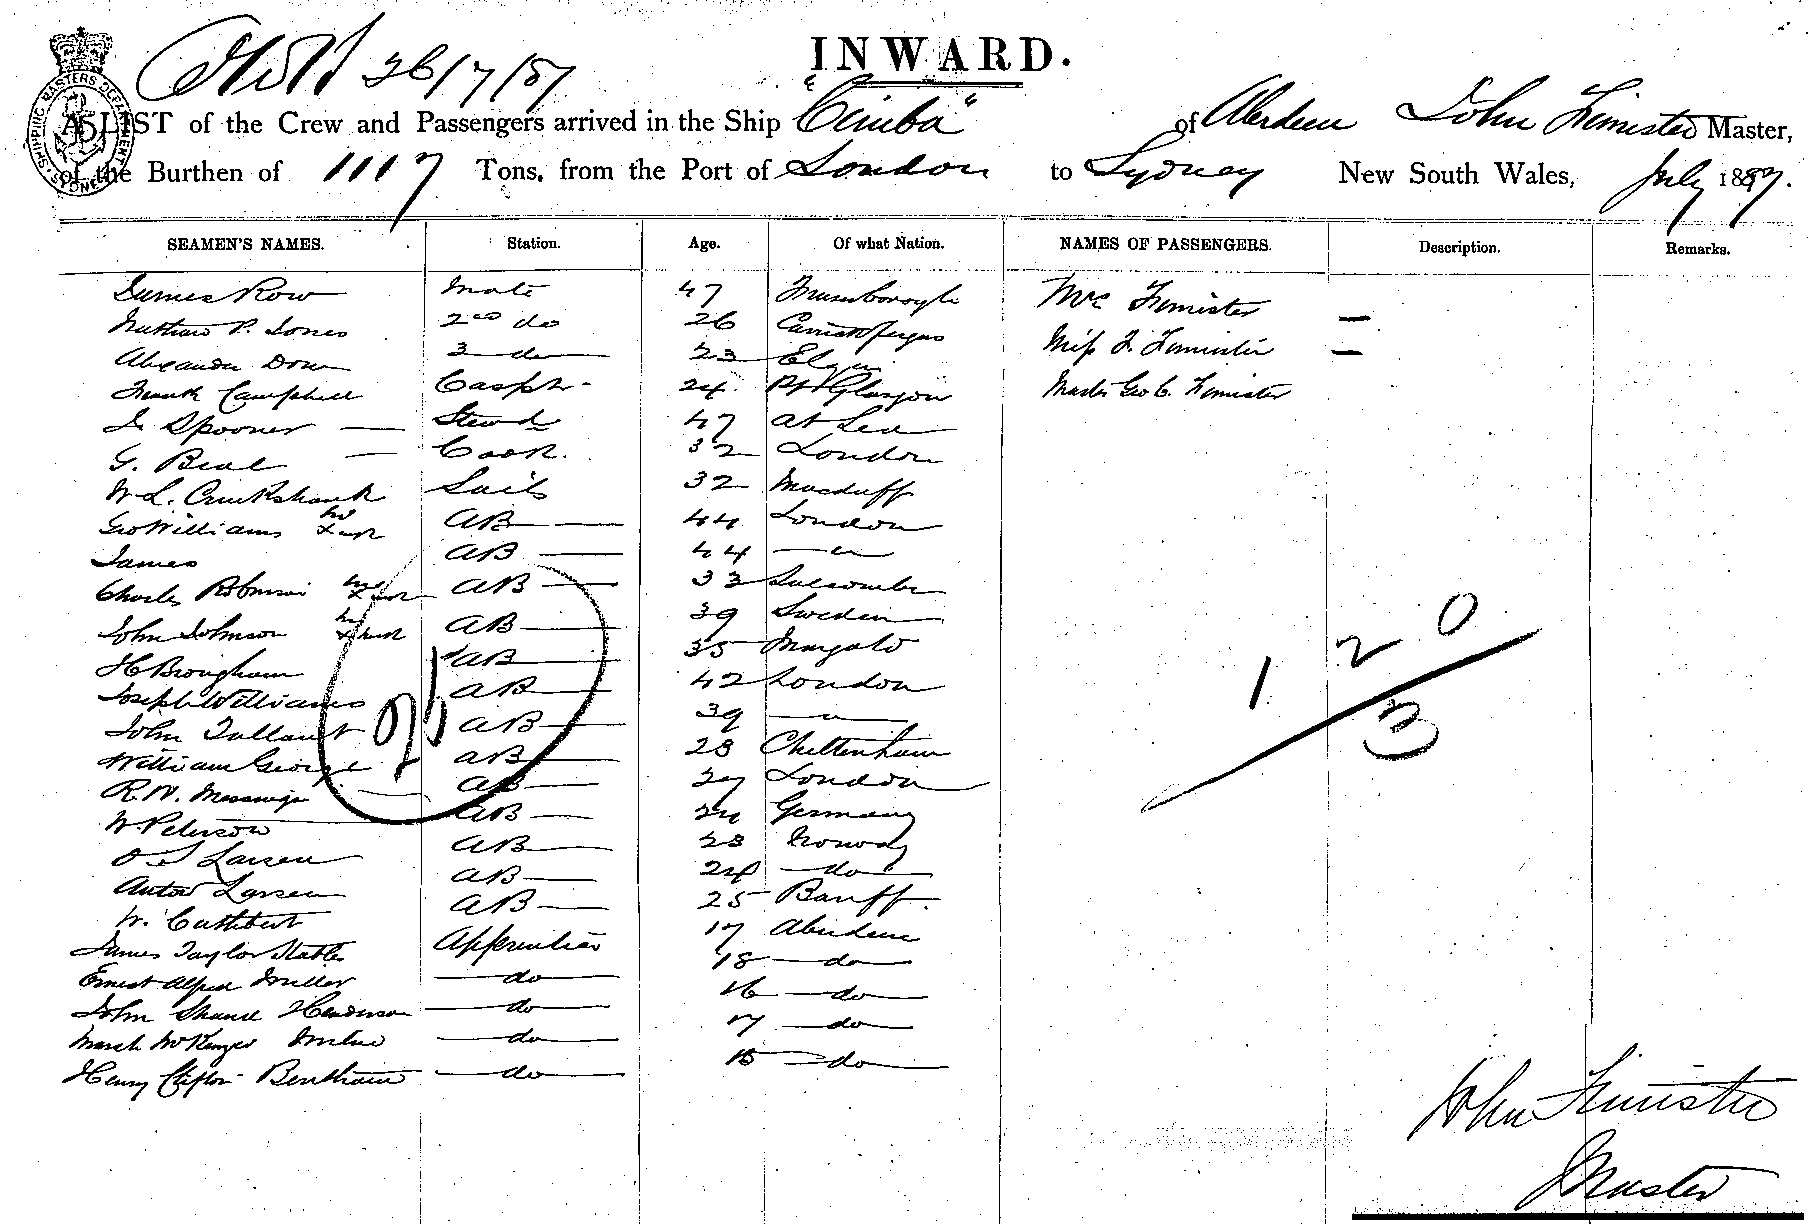 26/7/87
INWARD.
A LIST of the Crew and Passengers arrived in the Ship "Cimba" of Aberdeen John Fimister Master,
of the Burthen of 1117 Tons, from the Port of London to Sydney New South Wales, July 1887.
SEAMEN'S NAMES. Station. Age. Of what Nation. NAMES OF PASSENGERS. Description. Remarks.
James Row Mate 47 Mrs Fimister —
Nathan P. Jones 2nd do 26 Carrickfergus Miss J. Fimister —
Alexander Dow 3 do 23 Elgin Master Geo C. Fimister
Frank Campbell Carptr 24 Pt Glasgow
J. Spooner — Stewd 47 at Sea
G. Beal — Cook. 32 London
W. L. Cruikshank Sails 32 Macduff
Geo Williams his x mark AB — 44 London
James AB — 44 — " —
Charles Robinson his x mark AB — 33
John Johnson his x mark AB — 39 Sweden
H Brougham AB — 35 Margate
Joseph Williams AB — 42 London
John Tallant AB — 39 — " —
William George AB — 28 Cheltenham
R. W. AB — 27 London
W. Peterson AB — 24 Germany
O. J. Larsen AB — 28 Norway
Anton Larsen AB — 24 — do —
W. Cuthbert AB — 25 Banff.
James Taylor Stables Apprentice 17 Aberdeen
Ernest Alfred Miller — do — 18 — do —
John Shand Henderson — do — 16 — do —
McKenzie Milne — do — 17 — do —
Henry Clifton Bentham — do — 15 — do —
25
120
3
John Fimister
Master
SHIPPING MASTERS DEPARTMENT
SYDNEY